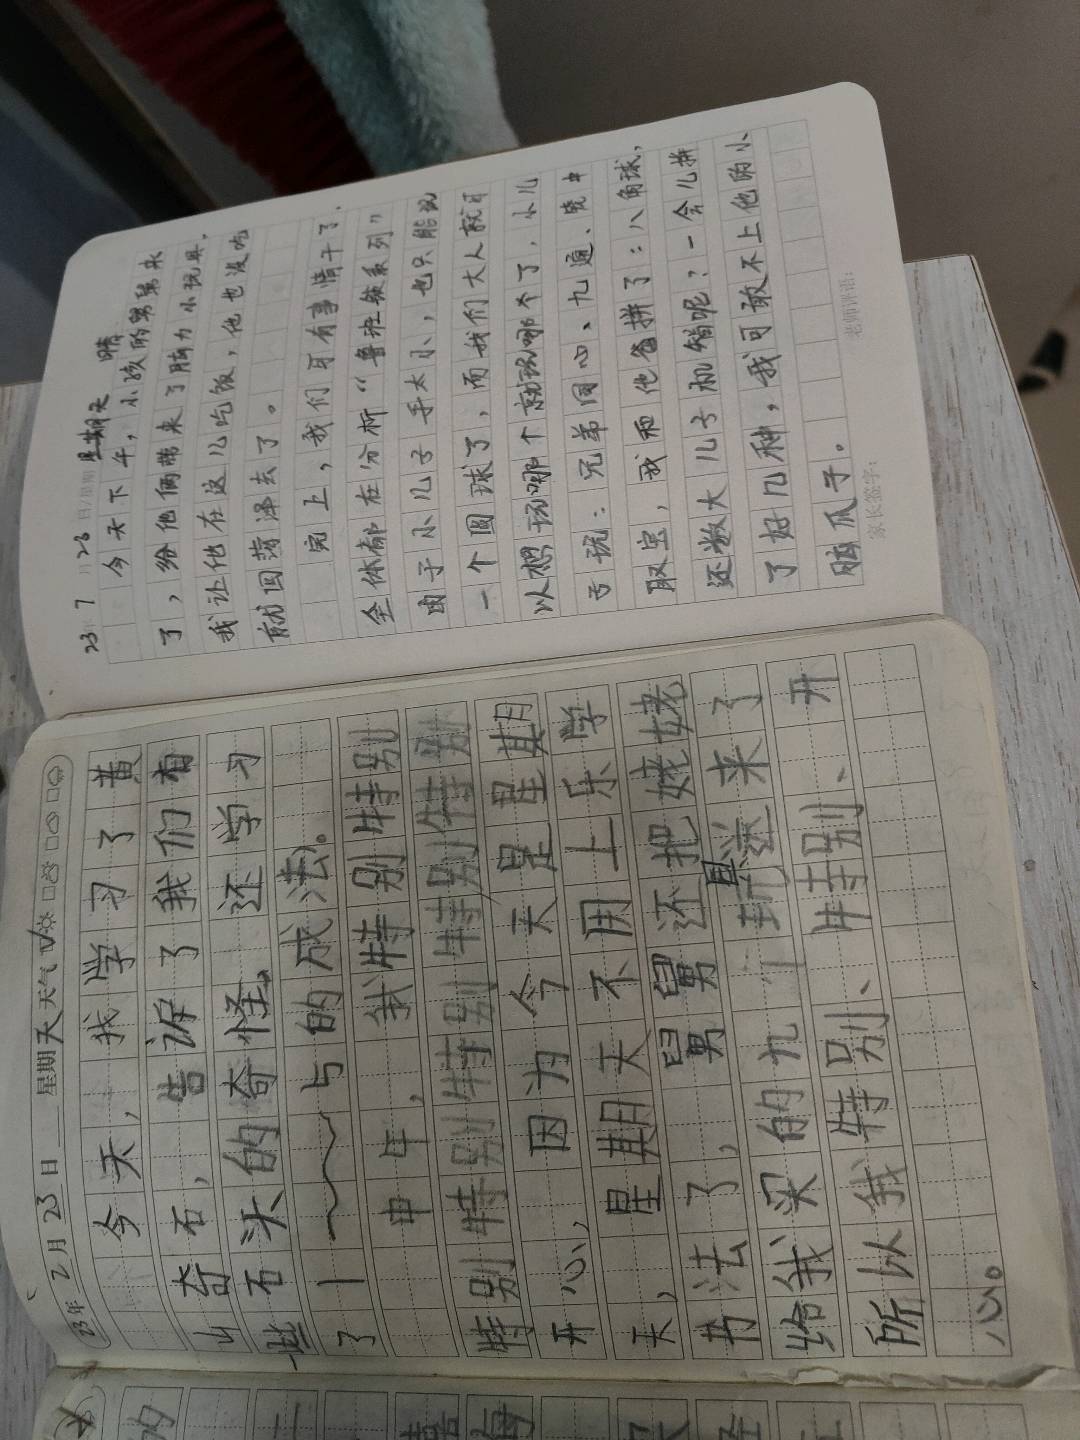 23年 2月 23日 星期天 天气
今天，我学习了黄
山奇石，告诉了我们有
一些石头的奇怪。还学习
了一与的成法。
中午，我特别特别
特别特别特别特别特别特别
开心，因为今天是星期
天，星期天不用上乐学
书法了，舅舅还把姥姥
给我买的九个玩具送来了
所以我特别、特别、特别、开
心。
23年 7月 23日 星期天 晴
今天下午，小孩的舅舅来
了，给他俩带来了脑力小玩具，
我让他在这儿吃饭，他也没吃
就回菏泽去了。
完上，我们可有事情干了，
全体都在分析“鲁班锁系列”
由于小儿子手太小，也只能玩
一个圆球了，而我们大人就可
以想玩哪个就玩哪个了，小儿
子玩：兄弟同心、九通、
取宝，我和他爸拼了：八角球，
还数大儿子机智呢？一会儿拼
了好几种，我可敌不上他的小
脑瓜子。
家长签字：
老师评语：